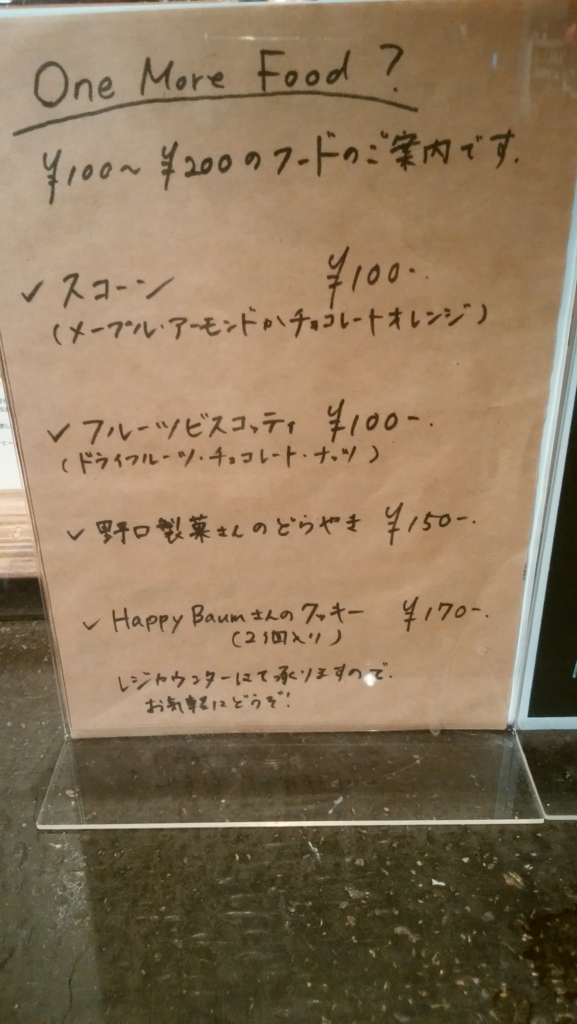 One More Food ?
¥100～¥200のフードのご案内です.
✓ スコーン ¥100-.
(メープル・アーモンドorチョコレートオレンジ)
✓ フルーツビスコッティ ¥100-.
(ドライフルーツ・チョコレート・ナッツ)
✓ 野口製菓さんのどらやき ¥150-.
✓ Happy Baumさんのクッキー ¥170-.
(2個入り)
レジカウンターにて承りますので.
お気軽にどうぞ!